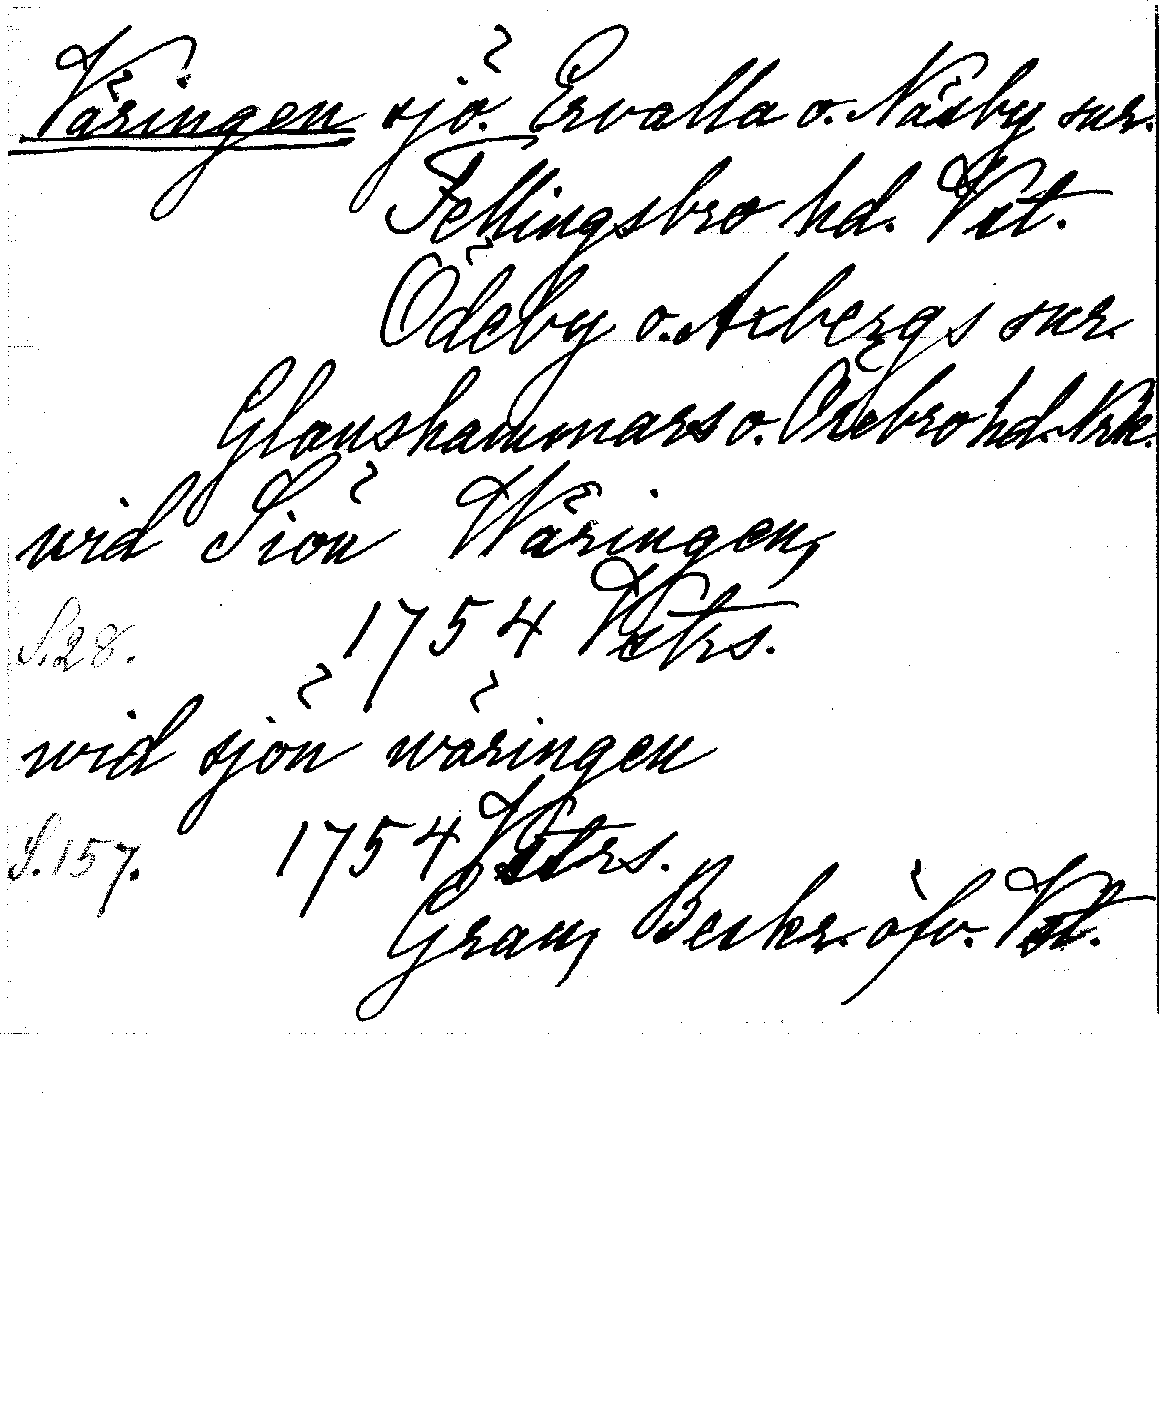 Väringen sjö. Ervalla o. Näsby snr.
Fellingsbro hd. Vst.
Ödeby o. Axbergs snr
Glanshammars o. Örebro hd. Nrk.
wid Siön Wäringen,
S.28. 1754 Vstrs.
wid sjön wäringen
S.157. 1754 Vstrs.
Grau, Beskr. öfv. Vst.